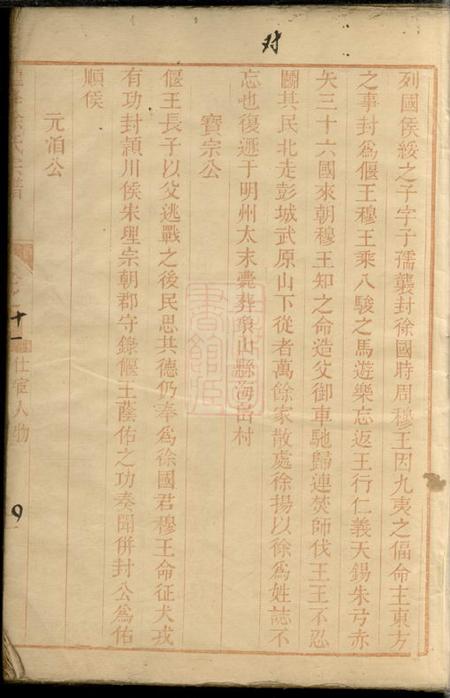 对
列國侯綏之子字子孺襲封徐國時周穆王因九夷之偪命主東方
之事封爲偃王穆王乘八駿之馬遊樂忘返王行仁義天錫朱弓赤
矢三十六國來朝穆王知之命造父御車馳歸連焚師伐王王不忍
鬭其民北走彭城武原山下從者萬餘家散處徐揚以徐爲姓誌不
忘也復遯于明州太末薨葬瓊山縣海畄村
寶宗公
偃王長子以父逃戰之後民思其德仍奉爲徐國君穆王命征犬戎
有功封潁川侯宋理宗朝郡守錄偃王蔭佑之功奏聞併封公爲佑
順侯
元洎公
徐氏宗譜
十一
仕宦人物
9